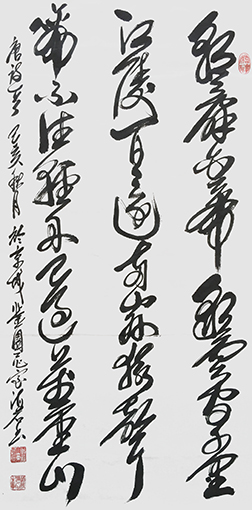 朝辞白帝彩云间千里
江陵一日还两岸猿声
啼不住轻舟已过万重山
唐诗一首己亥秋月於京城